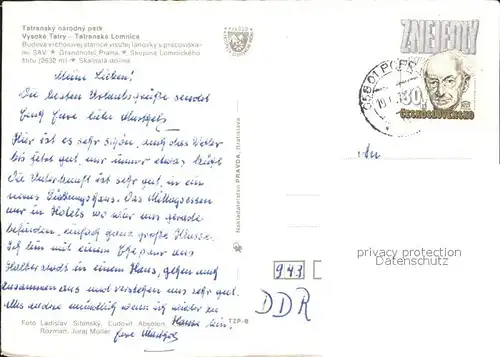 Tatranský národný park
Vysoké Tatry – Tatranská Lomnica
Budova vrcholovej stanice visutej lanovky s pracoviska-
mi SAV. ★ Grandhotel Praha. ★ Skupina Lomnického
štítu (2632 m) ★ Skalnatá dolina
Meine Lieben!
Die besten Urlaubsgrüße sendet
Euch Eure liebe
Hier ist es sehr schön, auch das Wetter
bis jetzt gut, nur immer etwas
Die Unterkunft ist sehr gut, in ein
neues Das Mittagessen
nur in Hotels wo wir uns gerade
befinden, einfach ganz große Klasse.
Ich bin mit einem Ehepaar aus
Halberstadt in einem Haus, gehen auch
zusammen aus und verstehen uns sehr gut.
Alles andere mündlich wenn ich wieder zu
Hause bin!
Eure
Foto Ladislav Sitenský, Ľudovít Absolon,
Rozman, Juraj Müller
TZP-B
Nakladateľstvo PRAVDA, Bratislava
ZNEJEDLÝ
058 01 POPRAD
30
ČESKOSLOVENSKO
An
943
DDR
privacy protection
Datenschutz